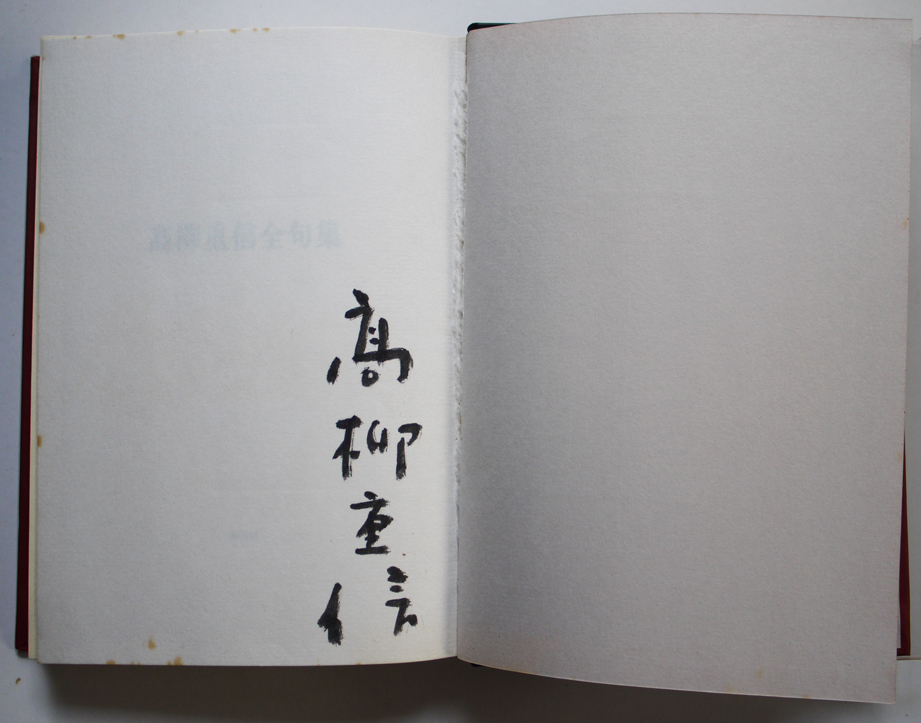 高柳重信
高柳重信全句集